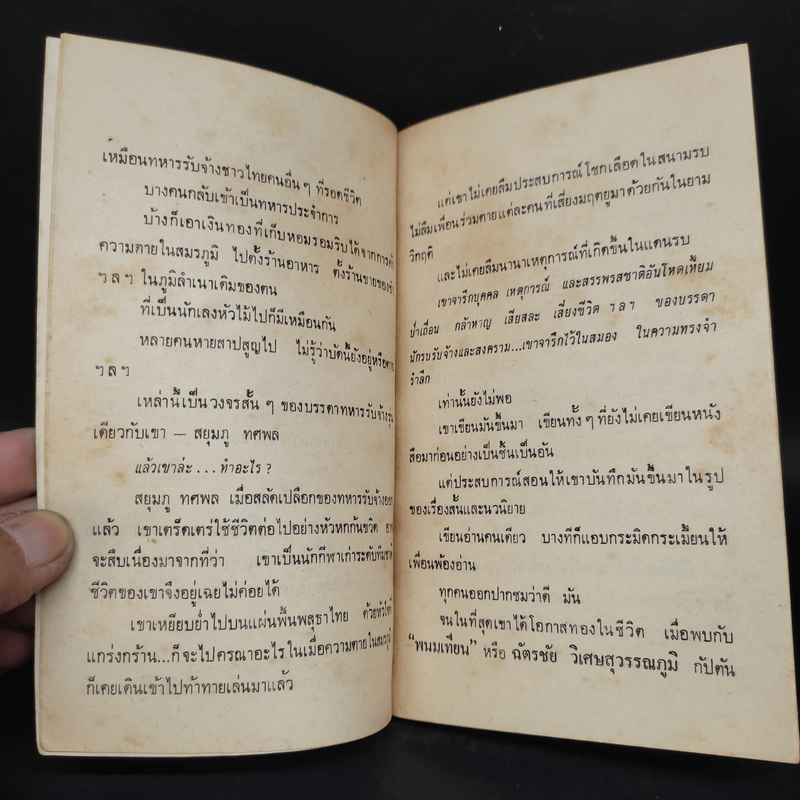 เหมือนทหารรับจ้างชาวไทยคนอื่น ๆ ที่รอดชีวิต
บางคนกลับเข้าเป็นทหารประจำการ
บ้างก็เอาเงินทองที่เก็บหอมรอมริบได้จากการค้า
ความตายในสมรภูมิ ไปตั้งร้านอาหาร ตั้งร้านขายของชำ
ฯลฯ ในภูมิลำเนาเดิมของตน
ที่เป็นนักเลงหัวไม้ไปก็มีเหมือนกัน
หลายคนหายสาปสูญไป ไม่รู้ว่าบัดนี้ยังอยู่หรือตาย
ฯลฯ
เหล่านี้เป็นวงจรสั้น ๆ ของบรรดาทหารรับจ้างรุ่น
เดียวกับเขา — สยุมภู ทศพล
แล้วเขาล่ะ...ทำอะไร ?
สยุมภู ทศพล เมื่อสลัดเปลือกของทหารรับจ้างออก
แล้ว เขาเตร็ดเตร่ใช้ชีวิตต่อไปอย่างหัวหกก้นขวิด
จะสืบเนื่องมาจากที่ว่า เขาเป็นนักกีฬาเก่าระดับทีมชาติ
ชีวิตของเขาจึงอยู่เฉยไม่ค่อยได้
เขาเหยียบย่ำไปบนแผ่นพื้นพสุธาไทย ด้วยหัวใจที่
แกร่งกร้าน...ก็จะไปครณาอะไรในเมื่อความตายในสมรภูมิ
ก็เคยเดินเข้าไปท้าทายเล่นมาแล้ว
แต่เขาไม่เคยลืมประสบการณ์โชกเลือดในสนามรบ
ไม่ลืมเพื่อนร่วมตายแต่ละคนที่เสี่ยงมฤตยูมาด้วยกันในยาม
วิกฤติ
และไม่เคยลืมนานาเหตุการณ์ที่เกิดขึ้นในแดนรบ
เขาจารึกบุคคล เหตุการณ์ และสรรพรสชาติอันโหดเหี้ยม
ป่าเถื่อน กล้าหาญ เสียสละ เสี่ยงชีวิต ฯลฯ ของบรรดา
นักรบรับจ้างและสงคราม...เขาจารึกไว้ในสมอง ในความทรงจำ
รำลึก
เท่านั้นยังไม่พอ
เขาเขียนมันขึ้นมา เขียนทั้ง ๆ ที่ยังไม่เคยเขียนหนัง
สือมาก่อนอย่างเป็นชิ้นเป็นอัน
แต่ประสบการณ์สอนให้เขาบันทึกมันขึ้นมาในรูป
ของเรื่องสั้นและนวนิยาย
เขียนอ่านคนเดียว บางทีก็แอบกระมิดกระเมี้ยนให้
เพื่อนพ้องอ่าน
ทุกคนออกปากชมว่าดี มัน
จนในที่สุดเขาได้โอกาสทองในชีวิต เมื่อพบกับ
“พนมเทียน” หรือ ฉัตรชัย วิเศษสุวรรณภูมิ กัปตัน